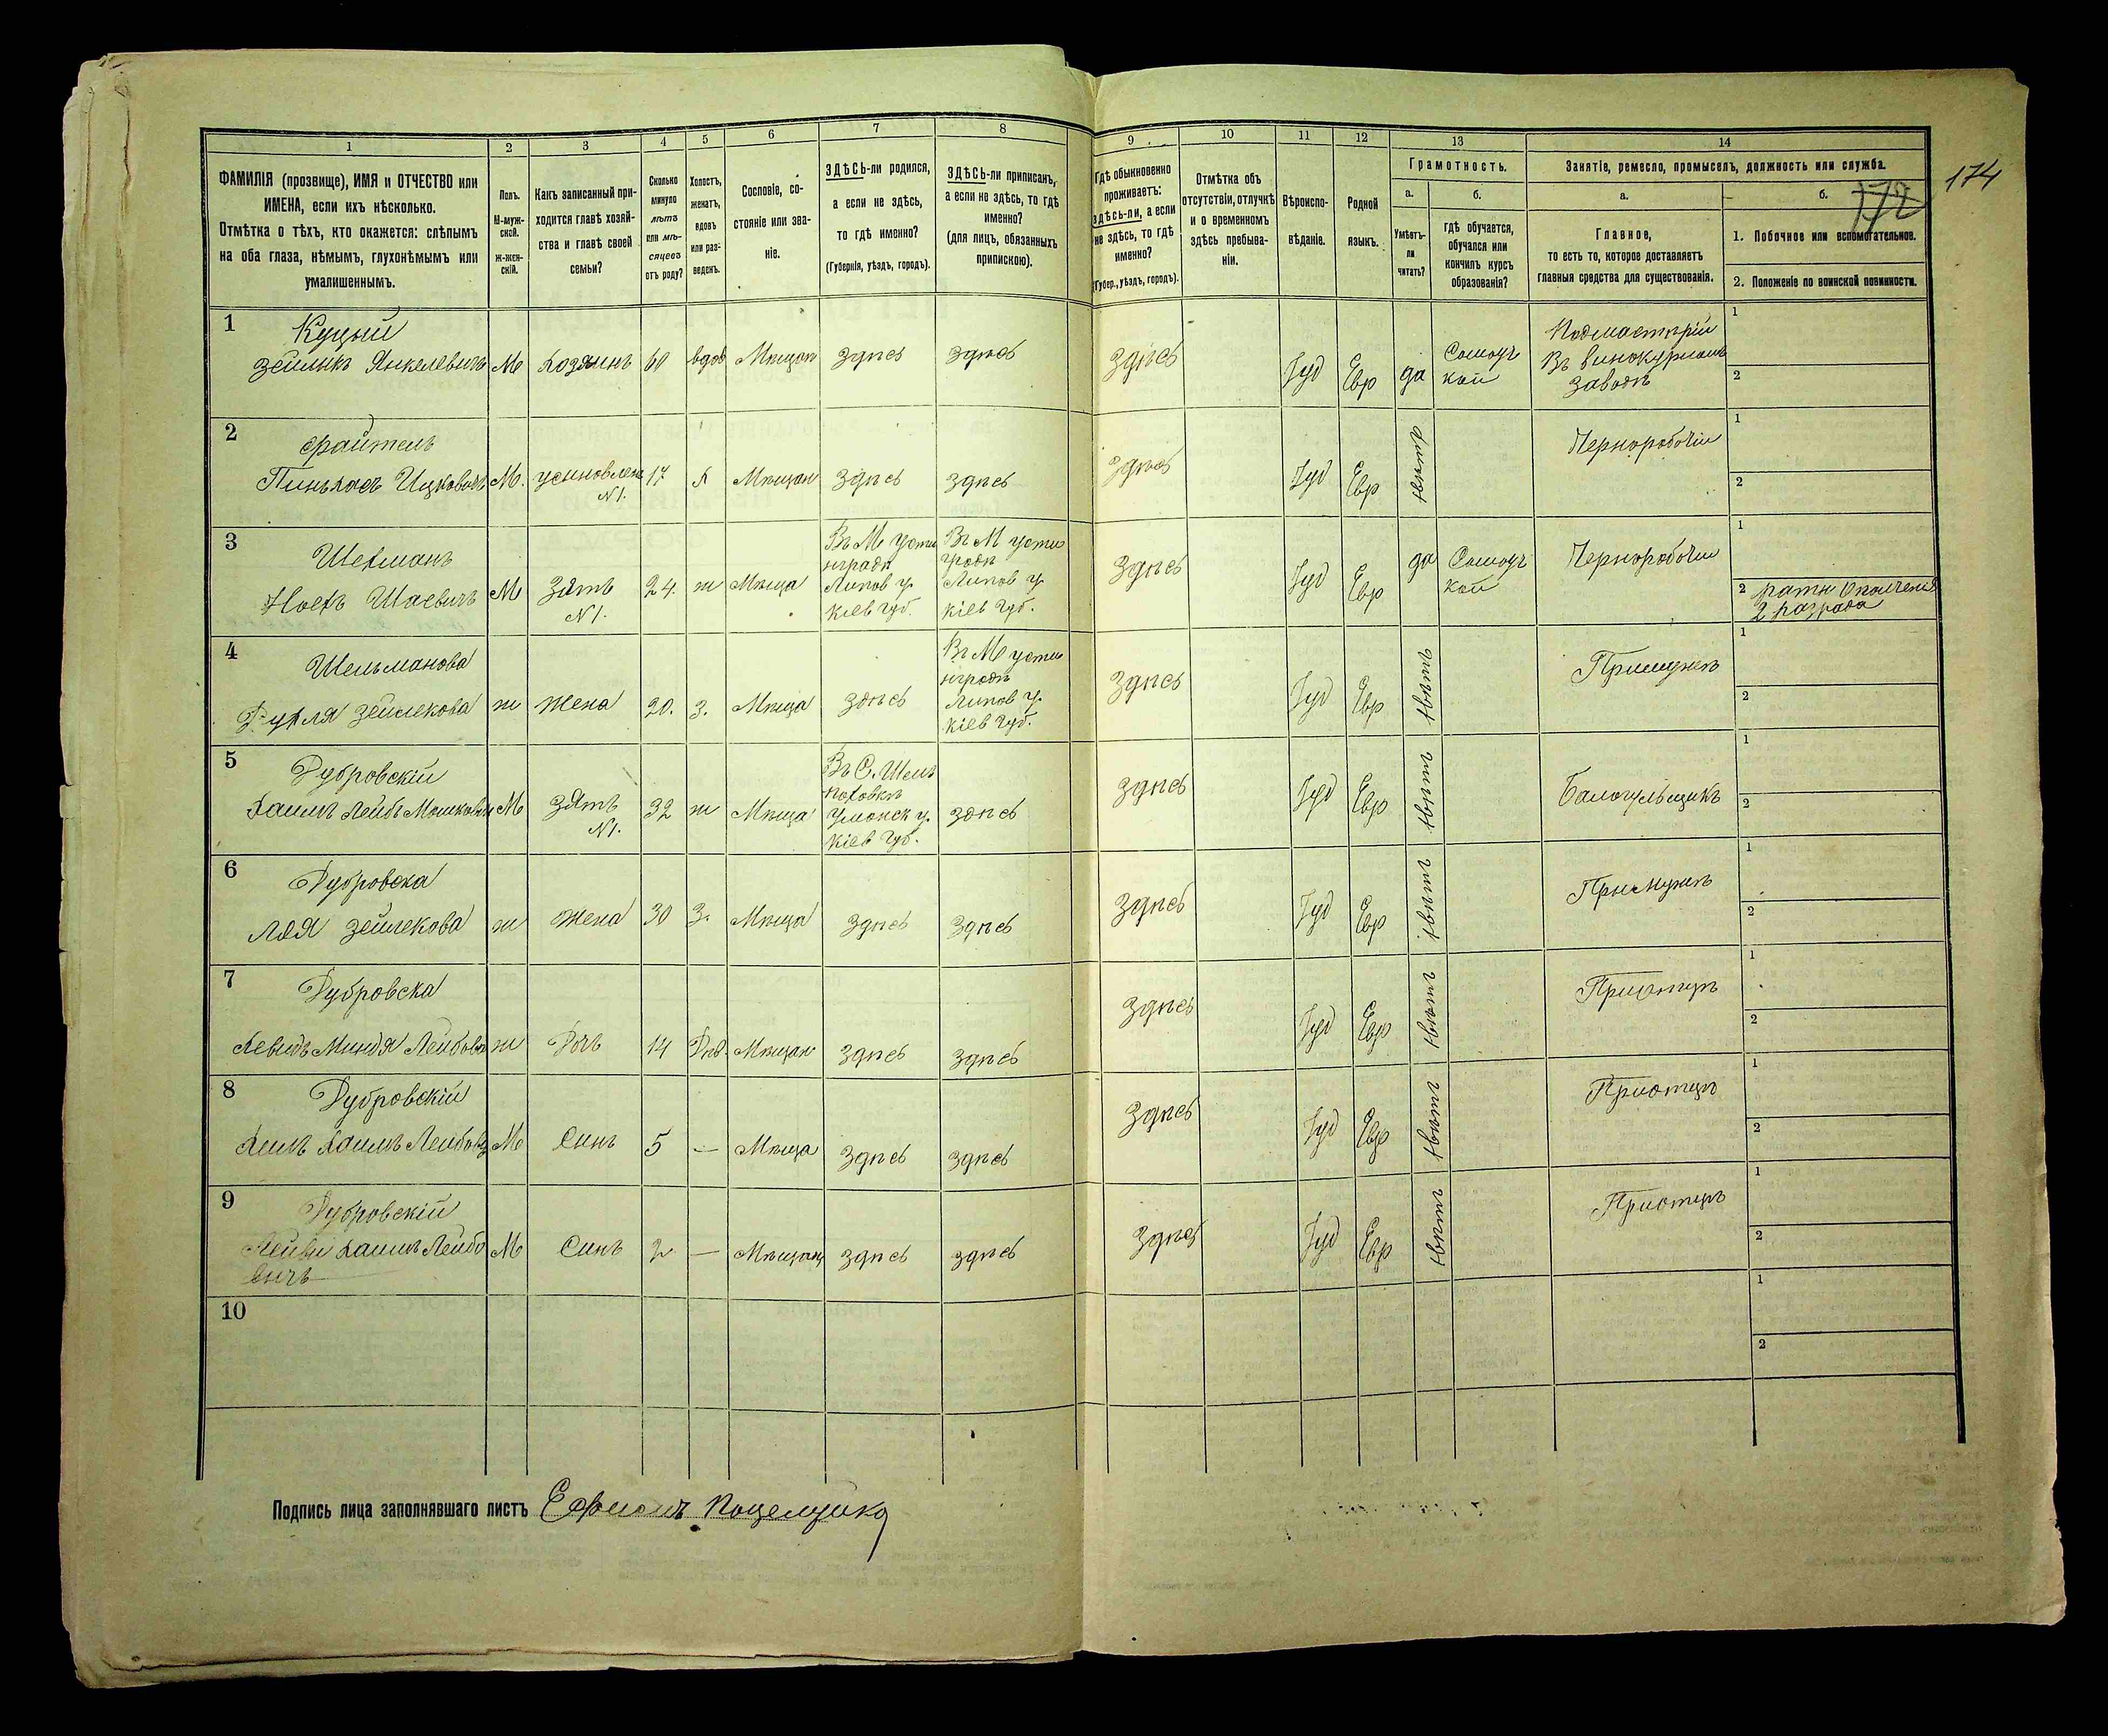 1 2 3 4 5 6 7 8 9 10 11 12 13 14
ФАМИЛІЯ (прозвище), ИМЯ и ОТЧЕСТВО или
ИМЕНА, если ихъ нѣсколько.
Отмѣтка о тѣхъ, кто окажется: слѣпымъ
на оба глаза, нѣмымъ, глухонѣмымъ или
умалишеннымъ.
Полъ.
М-муж-
ской.
Ж-жен-
скій.
Какъ записанный при-
ходится главѣ хозяй-
ства и главѣ своей
семьи?
Сколько
минуло
лѣтъ
или мѣ-
сяцевъ
отъ роду?
Холостъ,
женатъ,
вдовъ
или раз-
веденъ.
Сословіе, со-
стояніе или зва-
ніе.
ЗДѢСЬ-ли родился,
а если не здѣсь,
то гдѣ именно?
(Губернія, уѣздъ, городъ).
ЗДѢСЬ-ли приписанъ,
а если не здѣсь, то гдѣ
именно?
(для лицъ, обязанныхъ
припискою).
Гдѣ обыкновенно
проживаетъ:
здѣсь-ли, а если
не здѣсь, то гдѣ
именно?
(Губер., уѣздъ, городъ).
Отмѣтка объ
отсутствіи, отлучкѣ
и о временномъ
здѣсь пребыва-
ніи.
Вѣроиспо-
вѣданіе.
Родной
языкъ.
Грамотность.
а.
Умѣетъ-
ли
читать?
б.
гдѣ обучается,
обучался или
кончилъ курсъ
образованія?
Занятіе, ремесло, промыселъ, должность или служба.
а.
Главное,
то есть то, которое доставляетъ
главныя средства для существованія.
б.
1. Побочное или вспомогательное.
2. Положеніе по воинской повинности.
172
174
1
Куцый
Зейликъ Янкелевичъ М хозяинъ 60 вдов Мѣщан здѣсь здѣсь здѣсь Іуд Евр да
Самоуч
кой
Подмастерій
Въ винокурномъ
заводѣ
1
2
2
Файтель
Пинькасъ Ицковичъ М. усиновлен 17 х Мѣщан здѣсь здѣсь здѣсь Іуд Евр нѣтъ Чернорабочій
N 1.
1
2
3
Шехманъ
Ноехъ Шаевичъ М Зять 24. ж Мѣща
N 1.
Въ М Усти
нградѣ
Липов у.
Кіев губ.
Въ М Усти
градѣ
Липов у.
Кіев губ.
здѣсь Іуд Евр да
Самоуч
кой
Чернорабочій
1
2 ратн Ополченія
2 разряда
4
Шельманова
Рухля Зейлекова ж жена 20. з. Мѣща здѣсь
Въ М Усти
нградѣ
Липов у.
Кіев губ.
здѣсь Іуд Евр нѣтъ Примужѣ
1
2
5
Дубровскій
Хаимъ Лейбъ Мошковичъ М зять 32 ж Мѣща
N 1.
Въ С. Шель
паховкѣ
Уманск у.
Кіев губ.
здѣсь здѣсь Іуд Евр нѣтъ Балагульщикъ
1
2
6
Дубровска
Лея Зейлекова ж жена 30 З. Мѣща здѣсь здѣсь здѣсь Іуд Евр нѣтъ Примужѣ
1
2
7
Дубровска
Миндя Лейбова ж Дочь 14 Дѣв. Мѣщан здѣсь здѣсь здѣсь Іуд Евр нѣтъ Приотцѣ
1
2
8
Дубровскій
Хаимъ М Синъ 5 — Мѣща здѣсь здѣсь здѣсь Іуд Евр нѣтъ Приотцѣ
1
2
9
Дубровскій
Хаимъ Лейбо М Синъ 2 — Мѣщан здѣсь здѣсь здѣсь Іуд Евр нѣтъ Приотцѣ
вичъ
1
2
10
1
2
Подпись лица заполнявшаго листъ Ефиомъ Поцелуйко